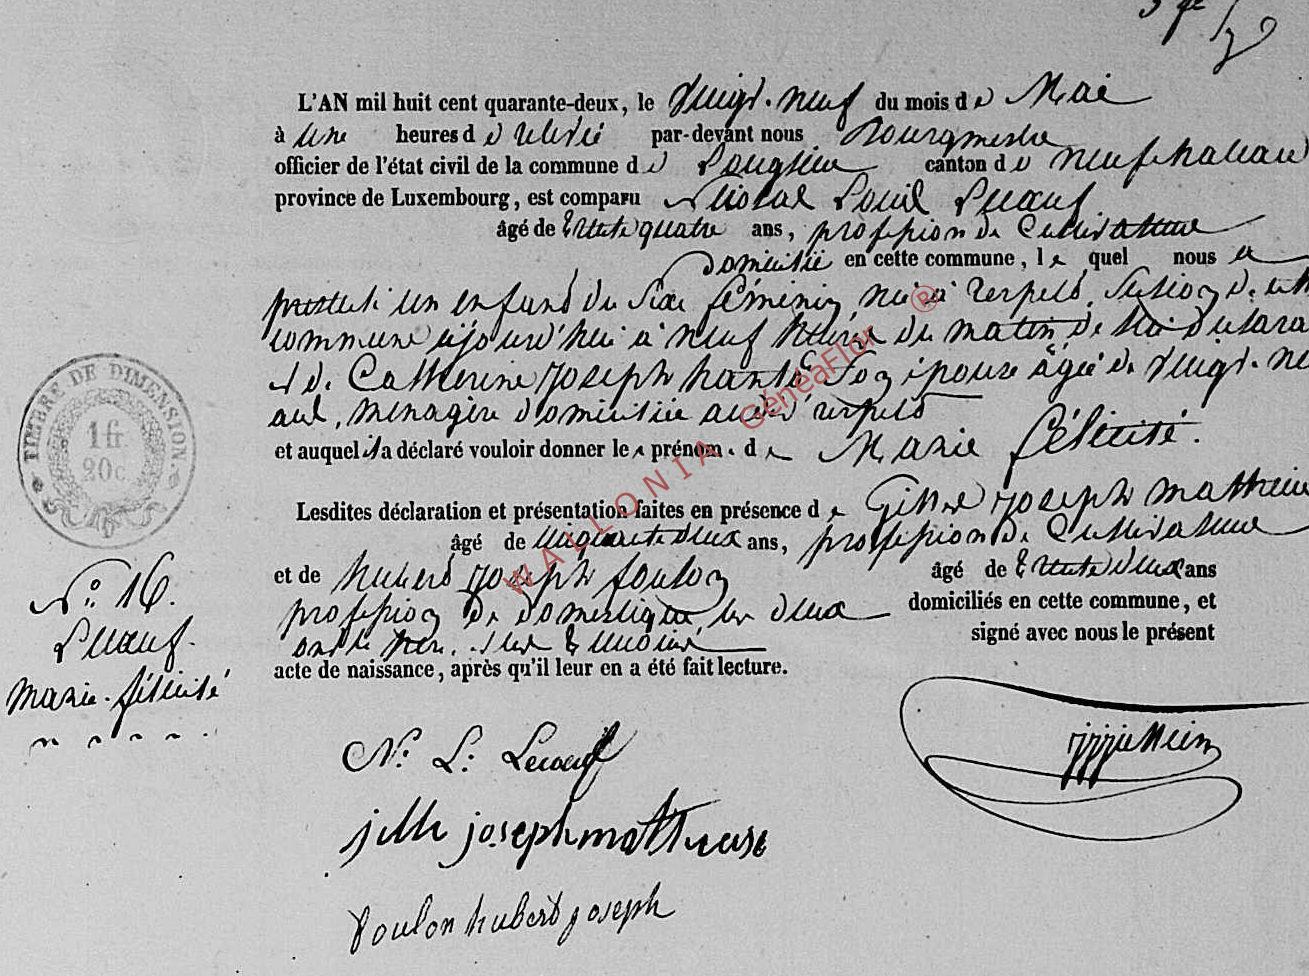 L'AN mil huit cent quarante-deux, le vingt-neuf du mois de Mai
à une heures de relevé par-devant nous Bourgmestre
officier de l'état civil de la commune de Longlier canton de neufchateau
province de Luxembourg, est comparu Nicolas Louis Lecoeuf
âgé de trente quatre ans, profession de Cultivateur
Domicilié en cette commune, le quel nous a
présenté un enfant du sexe féminin, née à respelt, section de cette
commune aujourd'hui à neuf heures du matin, de lui déclara
et de Catherine joseph son épouse âgée de vingt-ne
ans, ménagère domiciliée audit respelt
et auquel il a déclaré vouloir donner le prénom. de Marie félicité.
Lesdites déclaration et présentation faites en présence de Gille joseph
âgé de cinquante deux ans, profession de Cultivateur
et de hubert joseph foulon âgé de trente deux ans
profession de domestique les deux domiciliés en cette commune, et
ont le signé avec nous le présent
acte de naissance, après qu'il leur en a été fait lecture.
TIMBRE DE DIMENSION.
1 fr.
20c.
No. 16.
Lecoeuf.
marie-félicité
N. L. Lecoeuf
jille joseph
foulon hubert joseph
WALLONIA GénéaFlor ®